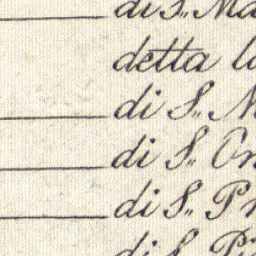 di S. Ma
detta la
di S. N
di S. On
di S. P
di S. Pi